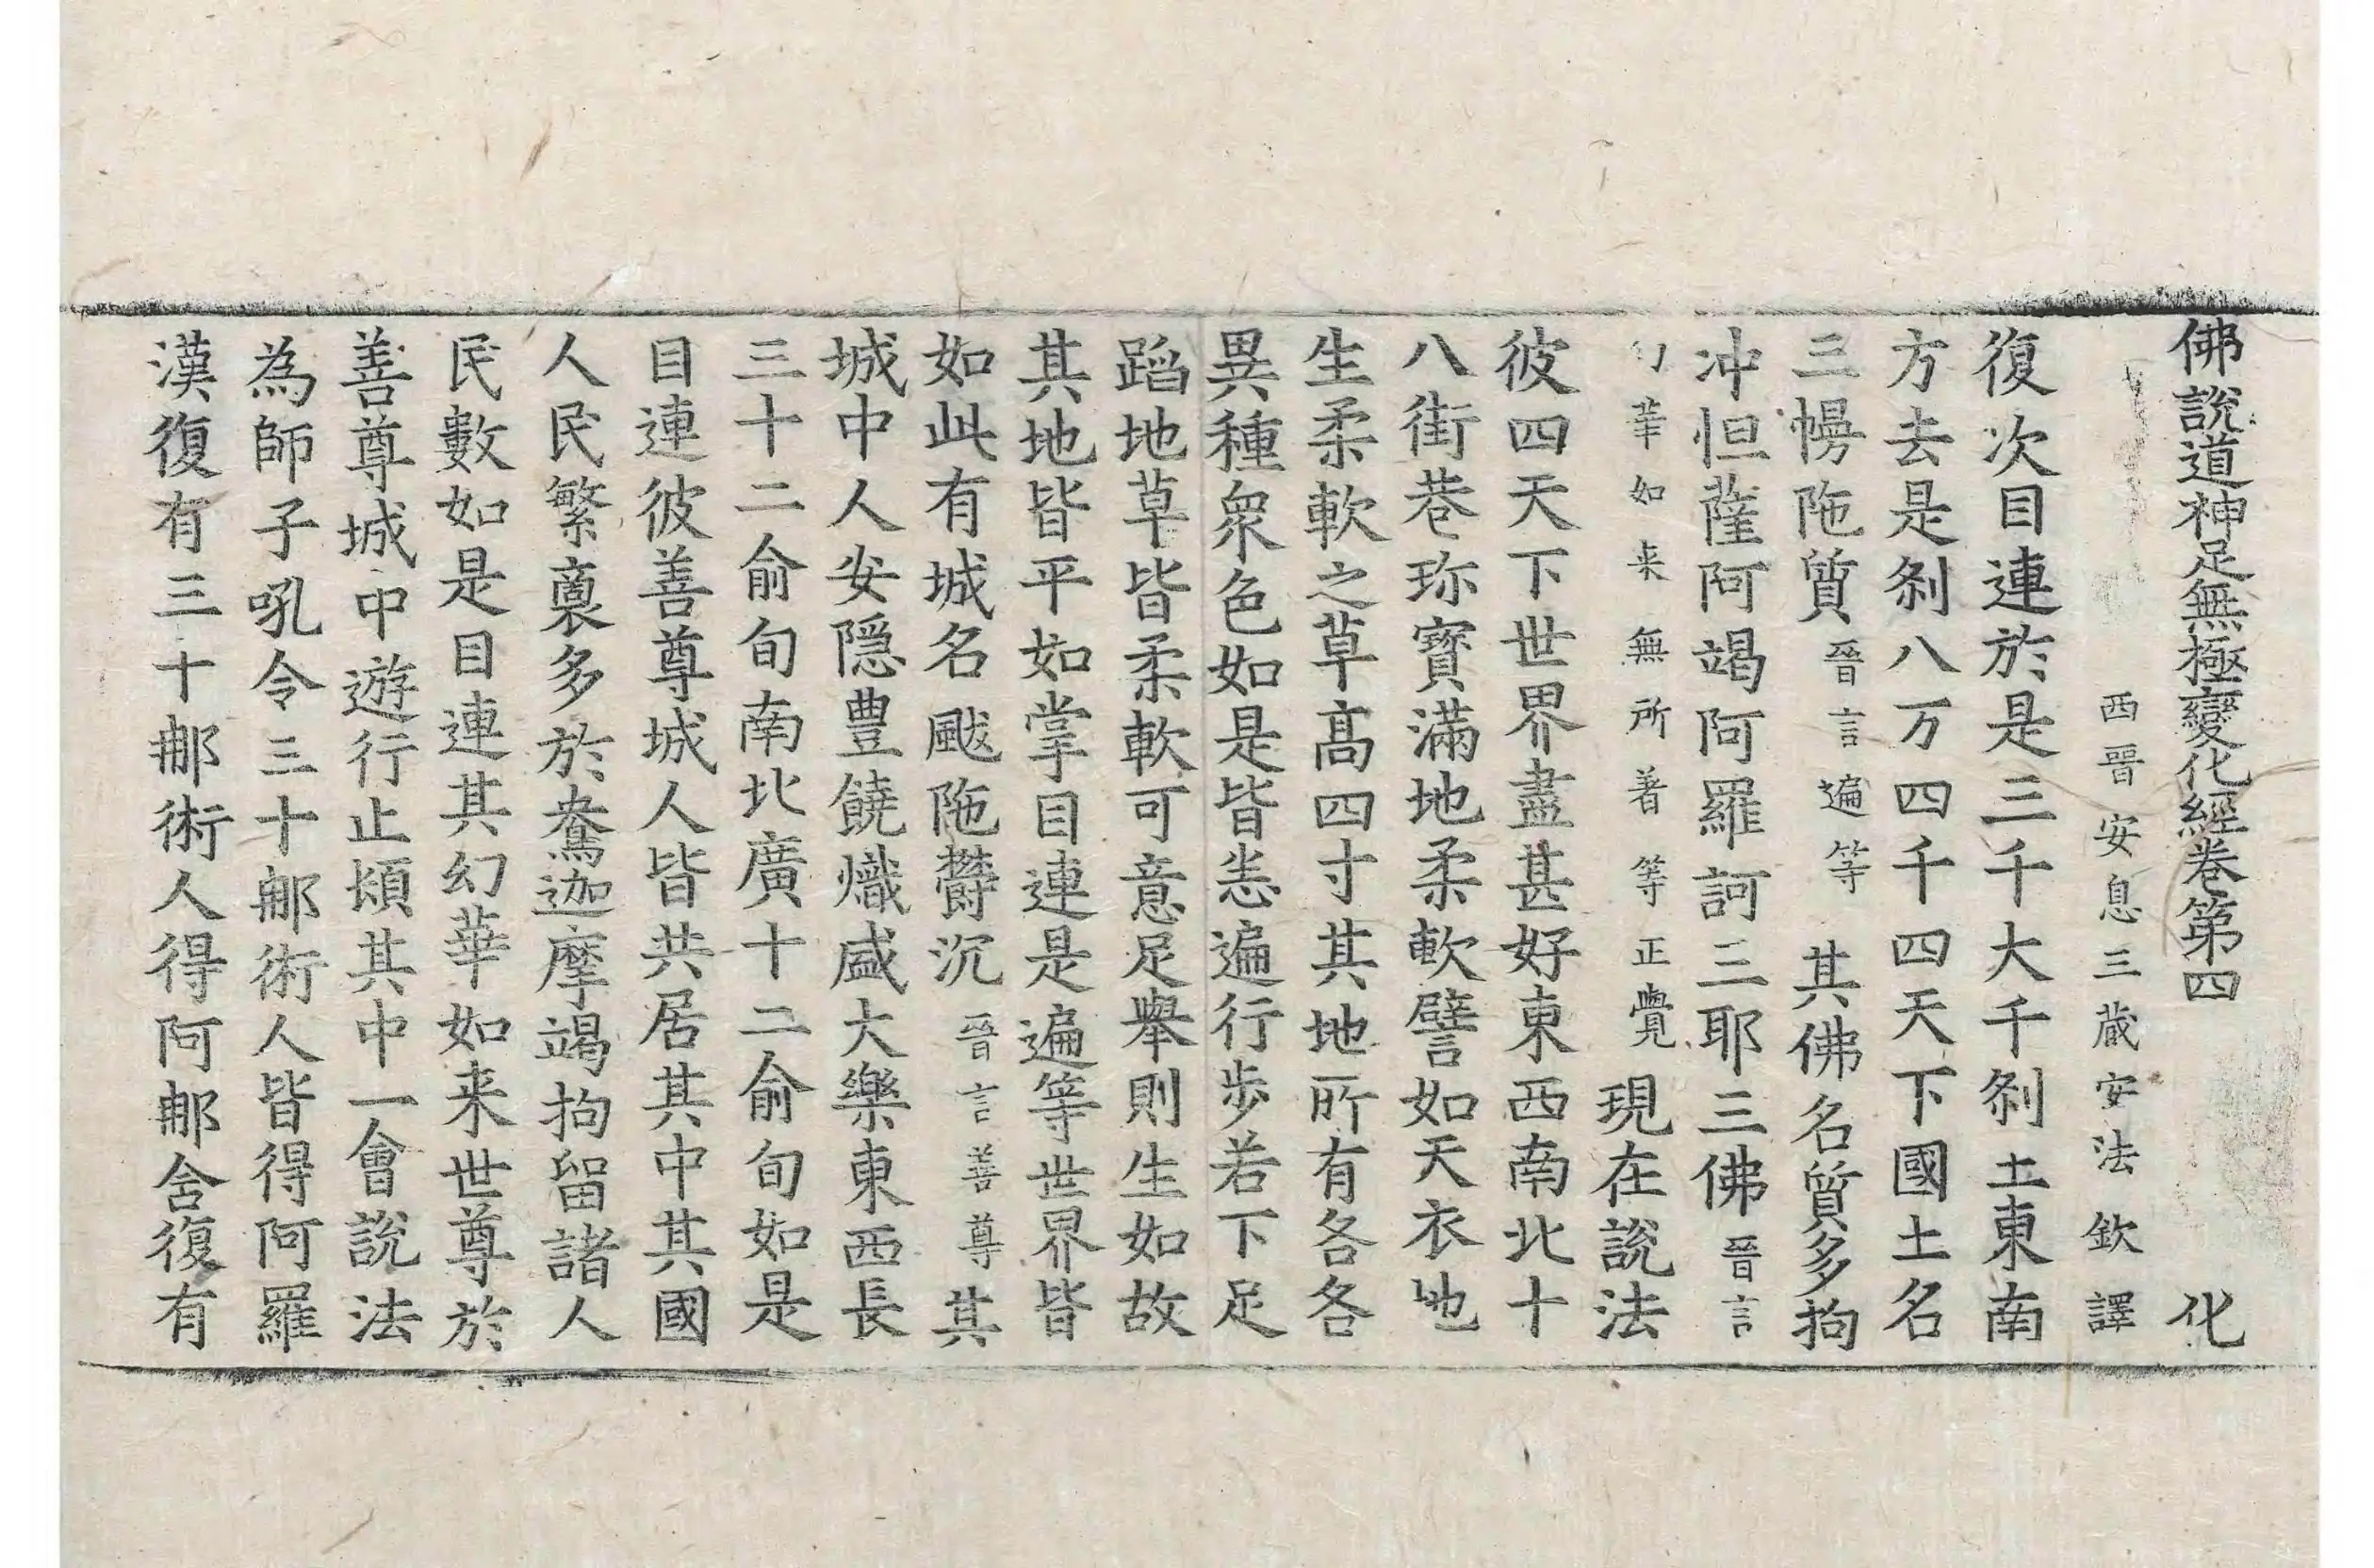 佛說道神足無極變化經卷第四 化
西晉安息三藏安法欽譯
復次目連於是三千大千刹土東南
方去是刹八万四千四天下國土名
三幔陁質晉言遍等其佛名質多拘
冲怛薩阿竭阿羅訶三耶三佛晉言
幻華如来無所著等正覺現在說法
彼四天下世界盡甚好東西南北十
八街巷珎寳滿地柔軟譬如天衣地
生柔軟之草高四寸其地所有各各
異種衆色如是皆悉遍行步若下足
蹈地草皆柔軟可意足舉則生如故
其地皆平如掌目連是遍等世界皆
如此有城名颰陁欝沉晉言善尊其
城中人安隱豊饒熾盛大樂東西長
三十二俞旬南北廣十二俞旬如是
目連彼善尊城人皆共居其中其國
人民繁裏多於鴦迦摩竭拘留諸人
民數如是目連其幻華如来世尊於
善尊城中遊行止頓其中一會說法
為師子吼令三十郍術人皆得阿羅
漢復有三十郍術人得阿郍含復有